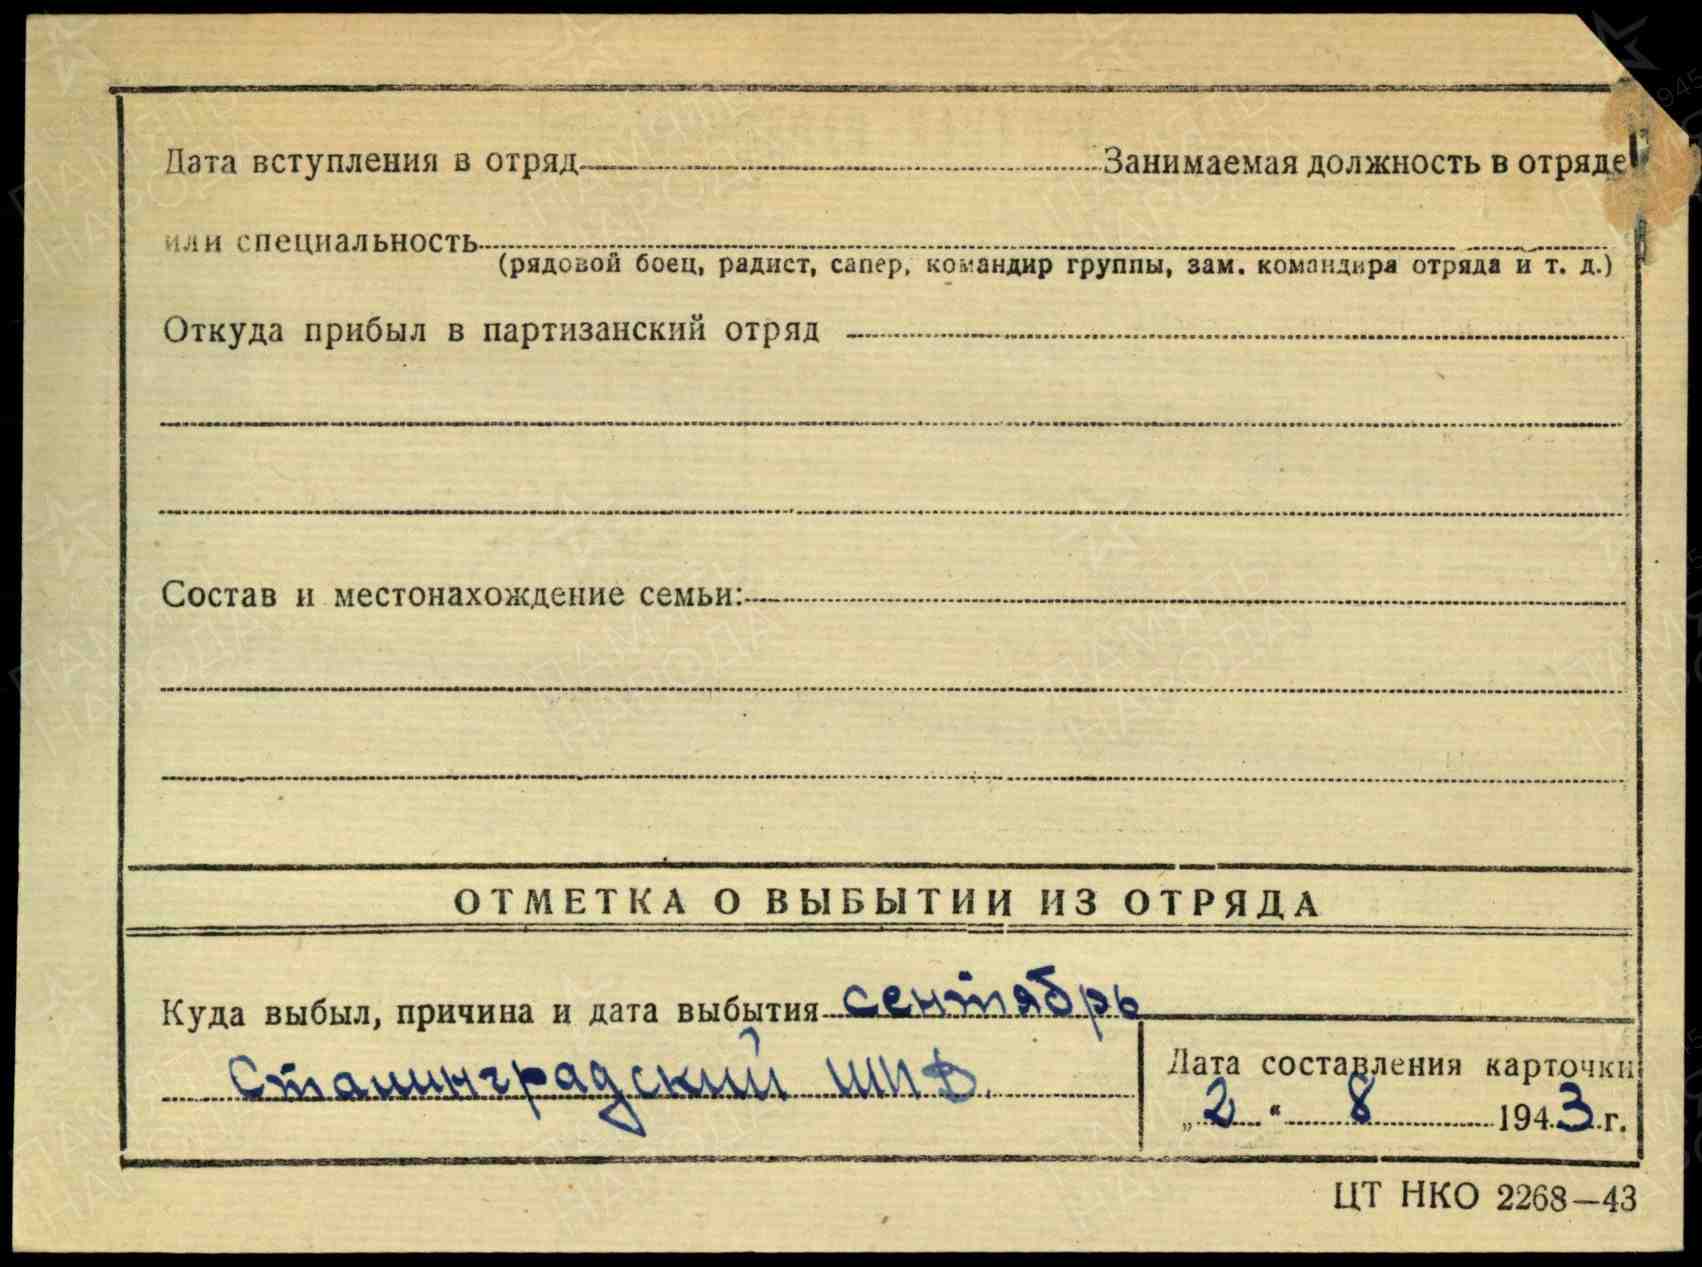 Дата вступления в отряд Занимаемая должность в отряде
или специальность
(рядовой боец, радист, сапер, командир группы, зам. командира отряда и т. д.)
Откуда прибыл в партизанский отряд
Состав и местонахождение семьи:
ОТМЕТКА О ВЫБЫТИИ ИЗ ОТРЯДА
Куда выбыл, причина и дата выбытия сентябрь
Сталинградский ШПД.
Дата составления карточки
„2“ 8 1943 г.
ЦТ НКО 2268—43
ПАМЯТЬ
НАРОДА